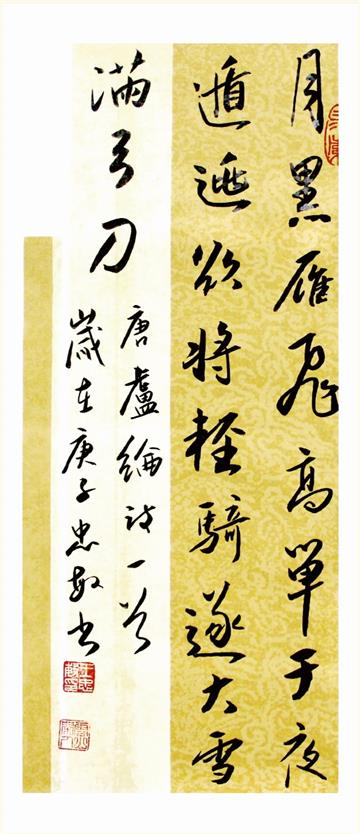 月黑雁飛高單于夜
遁逃欲将輕騎逐大雪
满弓刀
唐盧綸詩一首
歲在庚子忠敏书